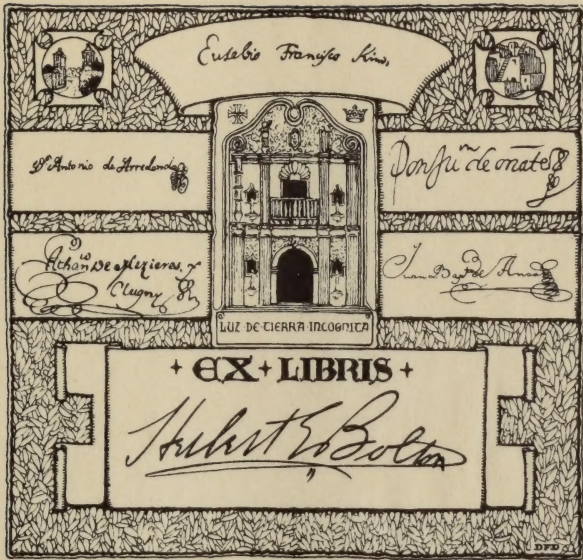 Eusebio Francisco Kino,
Dn Antonio de Arredondo
Don Jun de oñate
Athane de Mezieres, y
Clugny
Juan Bapta de Anza
LUZ DE TIERRA INCOGNITA
+ EX + LIBRIS +
Herbert E Bolton
DFD